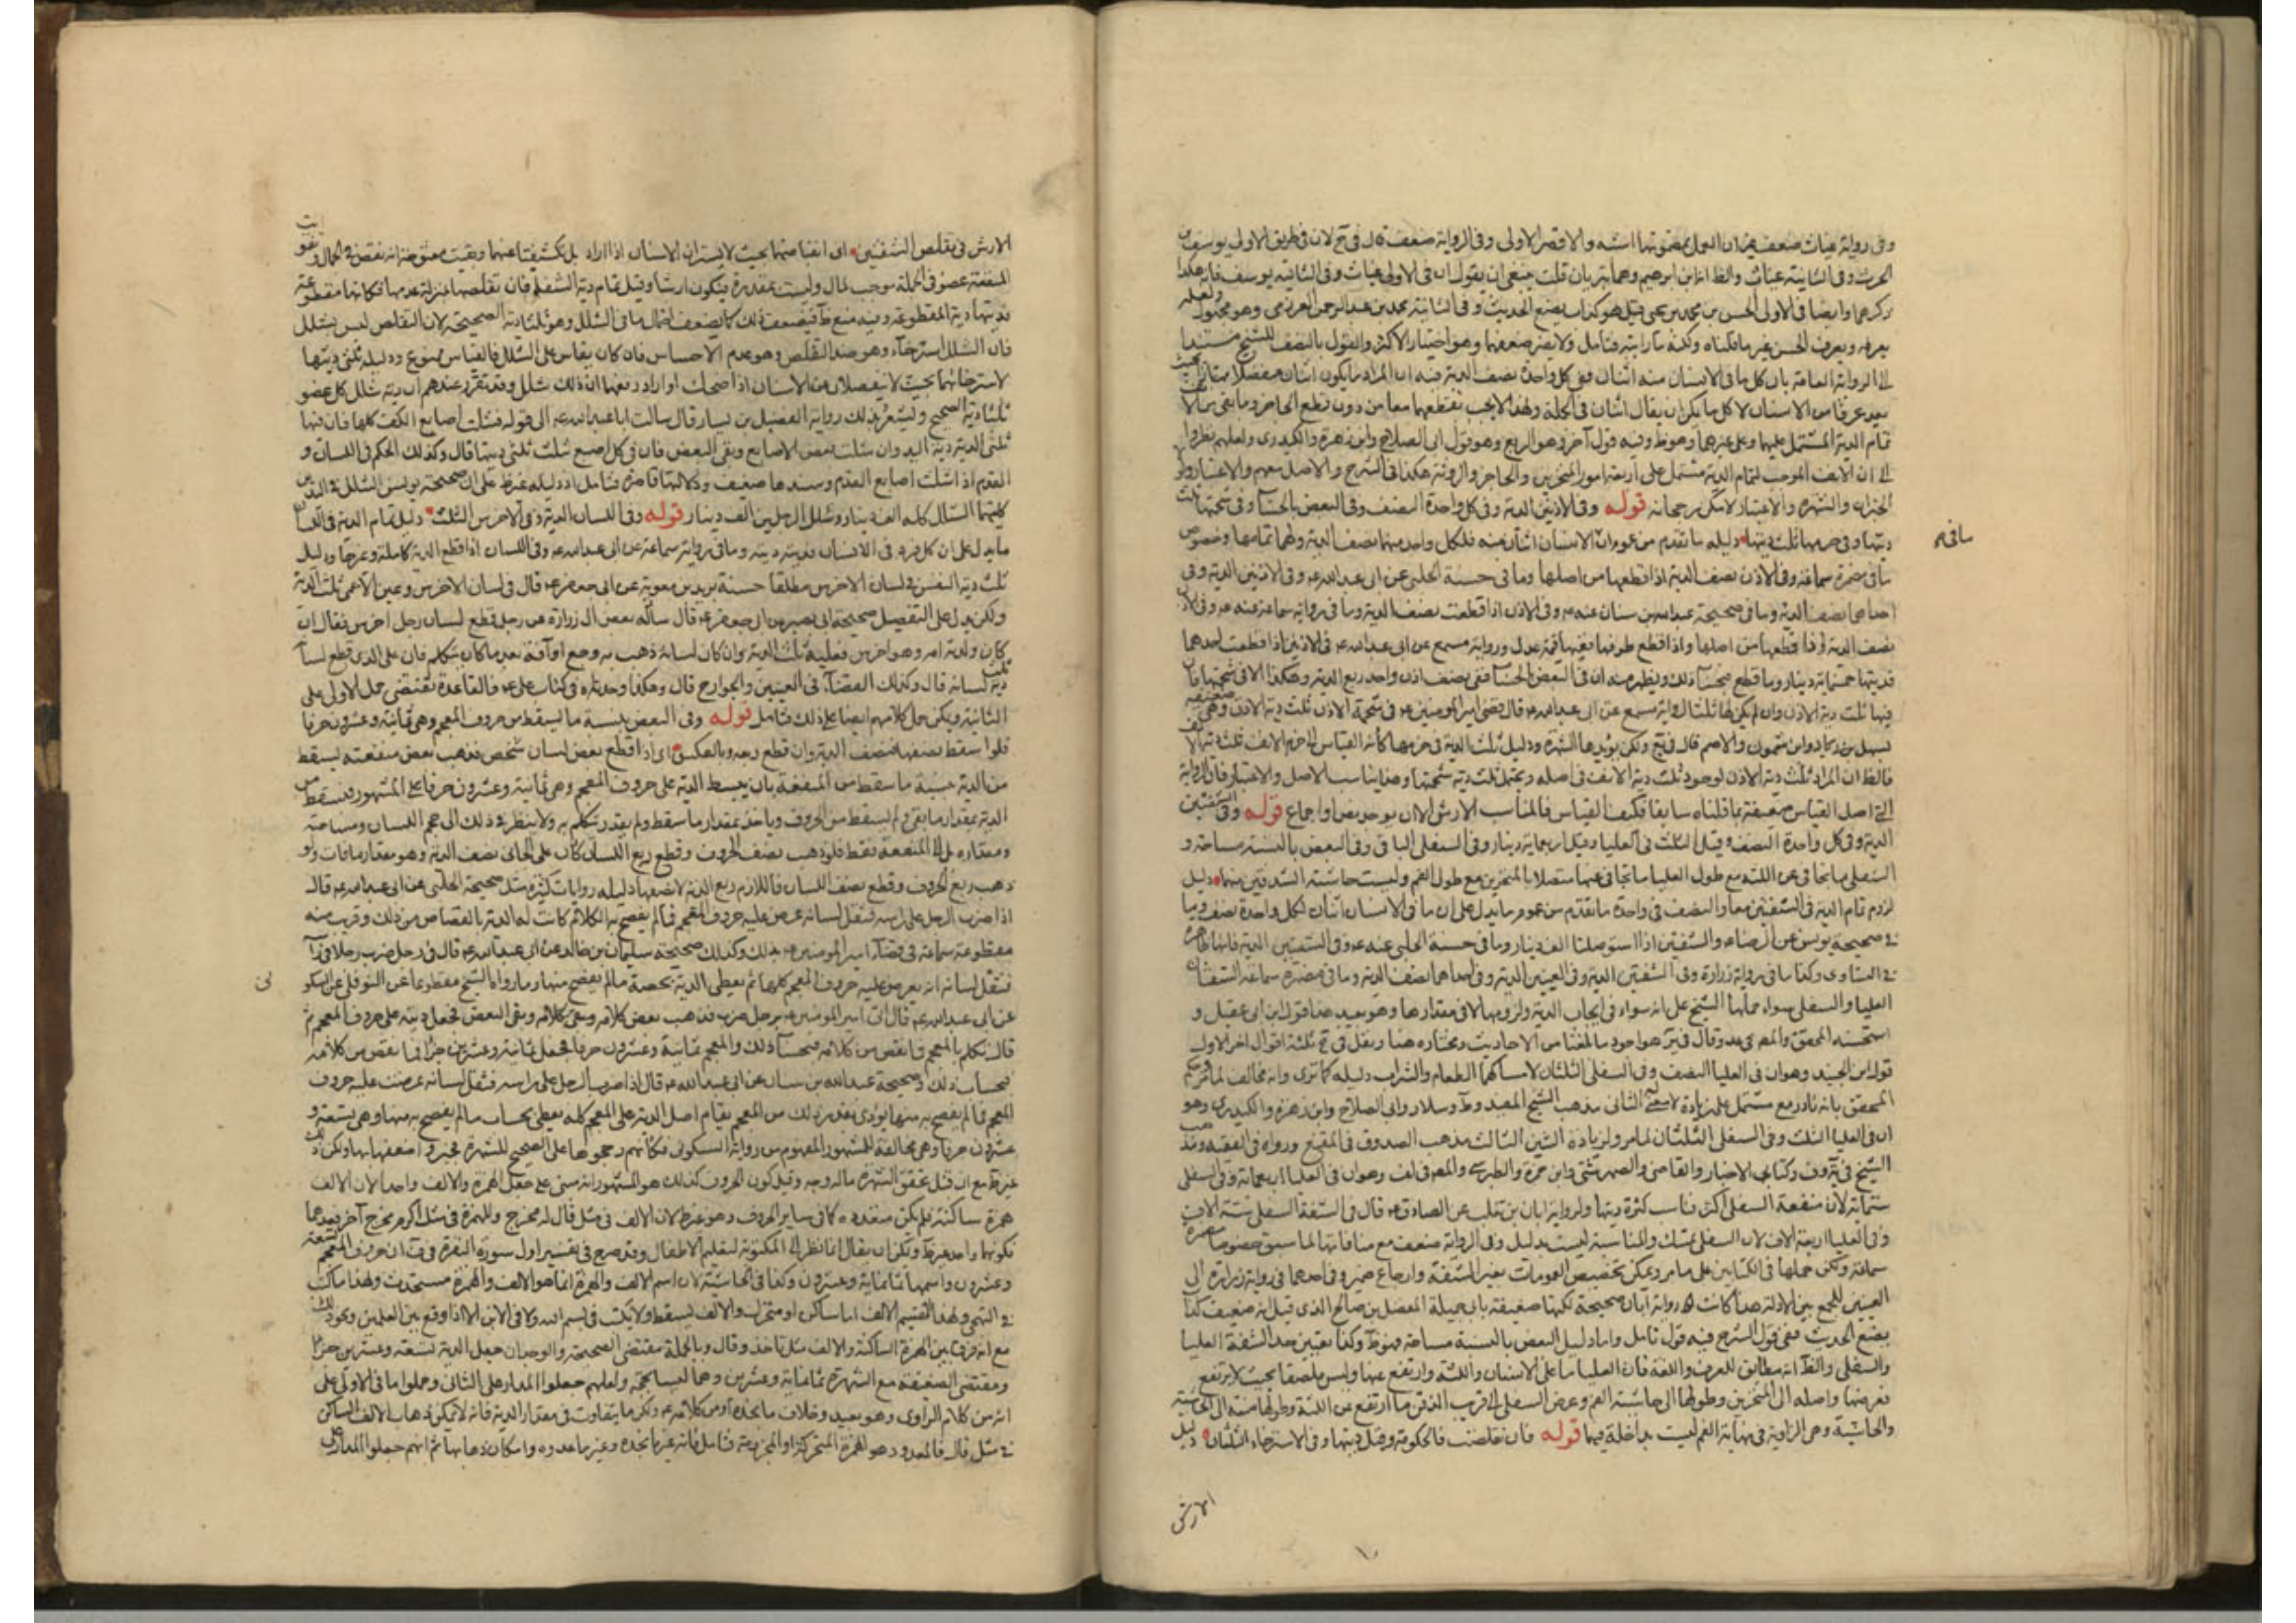 وفى رواية غياث ضعف فيمكن العمل بمضمونها اشبه والاقتصر الاولى وفى الرواية ضعف قال فى ئح لان فى طريق الاولى يوسف بن
الحرث وفى الثانية غياث والظ انه ابن ابرهيم وهما بتريان قلت ينبغى ان يقول ان فى الاولى غياث وفى الثانية يوسف فانه هكذا
ذكرهما وايضا فى الاولى الحسن بن محمد بن يحيى قيل هو كذاب يضع الحديث وفى الثانية محمد بن عبد الرحمن العرزمى وهو مجهول ولعله
يعرفه ويعرف الحسن غير ما قلناه ولكنه ما رايته فتامل ولا يضر ضعفهما وهو اختيار الاكثر والقول بالنصف للشيخ مستندا
الى الرواية العامة بان كل ما فى الانسان منه اثنان ففى كل واحدة نصف الدية فيه ان المراد ما يكون اثنان منفصلا ممتازا بحيث
يعد عرفا من الاسنان لا كل ما يمكن ان يقال اثنان فى الجملة ولهذا لا يجب بقطعهما معا من دون قطع الحاجز وما بقى من الانف
تمام الدية المشتمل عليهما وعلى غيرهما وهو ظ وفيه قول آخر وهو الربع وهو قول ابى الصلاح وابن زهرة والكيدرى ولعلهم نظروا
الى ان الانف الموجب لتمام الدية مشتمل على اربعة امور المنخرين والحاجز والروثة هكذا فى الشرح والاصل معهم والاعتبار ولو
الخبران والشهرة والاعتبار لامكن رجحانه قوله وفى الاذنين الدية وفى كل واحدة النصف وفى البعض بالحساب وفى شحمتها ثلث
ديتها وفى خرمها ثلث ديتها دليله ما تقدم من عموم ان الانسان اثنان منه فلكل واحد منهما نصف الدية ولهما تمامها وخصوص
ما فى
ما فى مضمرة سماعة وفى الاذن نصف الدية اذا قطعها من اصلها وما فى حسنة الحلبى عن ابى عبد الله ع وفى الاذنين الدية وفى
احدهما نصف الدية وما فى صحيحة عبد الله بن سنان عنه ع وفى الاذن اذا قطعت نصف الدية وما فى رواية سماعة عنه ع وفى الاذن
نصف الدية اذا قطعها من اصلها واذا قطع طرفها ففيها قيمة عدل ورواية مسمع عن ابى عبد الله ع فى الاذنين اذا قطعت احدهما
فديتها خمسمائة دينار وما قطع فبحساب ذلك ويظهر منه ان فى البعض الحساب ففى نصف اذن واحد ربع الدية وهكذا الا فى شحمتها فان
فيها ثلث دية الاذن وان لم يكن لها ثلثا لرواية مسمع عن ابى عبد الله ع قال قضى امير المؤمنين ع فى شحمة الاذن ثلث دية الاذن وهى ضعيفة
لسهل بن زياد وابن شمون والاصم قال فى ئح ولكن يؤيدها الشهرة ودليل ثلث الدية فى خرمها كأنه القياس الى خرم الانف ثلث دية الانف
فالظ ان المراد ثلث دية الاذن لوجود ثلث دية الانف فى اصله ويحتمل ثلث دية شحمتها وهذا يناسب الاصل والاعتبار فان الرواية
التى اصل القياس ضعيفة بما قلناه سابقا فكيف القياس فالمناسب الارش الا ان يوجد نص او اجماع قوله وفى الشفتين
الدية وفى كل واحدة النصف وقيل الثلث فى العليا وقيل اربعمائة دينار وفى السفلى الباقى وفى البعض بالنسبة مساحة و
السفلى ما تجافى عن اللثة مع طول العليا ما تجافى عنها متصلا بالمنخرين مع طول الفم وليست حاشية الشدقين منهما دليل
لزوم تمام الدية فى الشفتين معا والنصف فى واحدة ما تقدم من عموم ما يدل على ان ما فى الانسان اثنان لكل واحدة نصف وما
فى صحيحة يونس عن الرضا ع والشفتين اذا استوصلتا الف دينار وما فى حسنة الحلبى عنه ع وفى الشفتين الدية فانها ظاهرة
فى التساوى وكذا ما فى رواية زرارة وفى الشفتين الدية وفى العينين الدية وفى احداهما نصف الدية وما فى مضمرة سماعة الشفتان
العليا والسفلى سواء حملها الشيخ على انه سواء فى ايجاب الدية ولزومها لا فى مقدارها وهو بعيد هذا قول ابن ابى عقيل و
استحسنه المحقق والمص فى عد وقال فى ير هو اجود ما بلغنا من الاحاديث ومختاره هنا ونقل فى ئح ثلثة اقوال اخر الاول
قول ابن الجنيد وهو ان فى العليا النصف وفى السفلى الثلثان لامساكها الطعام والشراب دليله كما ترى وانه مخالف لما مر وحكم
المحقق بانه نادر مع مشتمل على زيادة لا معنى لها الثانى مذهب الشيخ المفيد وط وسلار وابى الصلاح وابن زهرة والكيدرى وهو
ان فى العليا الثلث وفى السفلى الثلثان لما مر ولزيادة الشين الثالث مذهب الصدوق فى المقنع ورواه فى الفقيه ومذهب
الشيخ فى يه وف وكتابى الاخبار والقاضى والصهرشتى وابن حمزة والطبرسى والمص فى لف وهو ان فى العليا اربعمائة وفى السفلى
ستمائة لان منفعة السفلى اكثر فناسب كثرة ديتها ولرواية ابان بن تغلب عن الصادق ع قال فى الشفة السفلى ستة الاف
وفى العليا اربعة الاف لان السفلى تمسك والمناسبة ليست بدليل وفى الرواية ضعف مع منافاتها لما سبق خصوصا مضمرة
سماعة ويمكن حملها فى الكتابين على ما مر ويمكن تخصيص العمومات بغير الشفة وارجاع ضمير وفى احدهما فى رواية زرارة الى
العينين للجمع بين الادلة هذا كانت رواية ابان صحيحة لكنها ضعيفة بابى جميلة المفضل بن صالح الذى قيل انه ضعيف كذاب
يضع الحديث ففى قول الشرح فيه قول تامل واما دليل البعض بالنسبة مساحة فهو ظ وكذا تعيين حد الشفة العليا
والسفلى والظ انه مطابق للعرف واللغة فان العليا ما على الاسنان واللثة وارتفع عنها وليس ملصقا بحيث لا يرتفع
فعرضها واصله الى المنخرين وطولها الى حاشية الفم وعرض السفلى الى قريب الذقن ما ارتفع عن اللثة وطولها منه الى الحاشية
والحاشية وهى الزاوية فى نهاية الفم ليست بداخلة فيها قوله فان تقلصت فالحكومة وقيل ديتها وفى الاسترخاء الثلثان دليل
الارش
الارش فى تقلص الشفتين اى انقباضهما بحيث لا يستران الاسنان اذا اراد بل تكشفتا عنهما وبقيت مفتوحة انه نقص فى الجمال وتفويت
المنفعة عضو فى الجملة موجب لمال وليست بمقدرة فيكون ارشا وقيل تمام دية الشفة فان تقلصها بمنزلة عدمها فكانها مقطوعة
فديتها دية المقطوعة وفيه منع ظ فيضعف ذلك كما يضعف احتمال ما فى الشلل وهو ثلثا دية الصحيحة لان التقلص ليس بشلل
فان الشلل استرخاء وهو ضد التقلص وهو عدم الاحساس فان كان يقاس على الشلل فالقياس ممنوع ودليله ثلثى ديتها
لاسترخائهما بحيث لا ينفصلان عن الاسنان اذا ضحك او اراد رفعهما ان ذلك شلل وقد تقرر عندهم ان دية شلل كل عضو
ثلثا دية الصحيح وليشعر بذلك رواية الفضيل بن يسار قال سالت ابا عبد الله ع الى قوله فشلت اصابع الكف كلها فان فيها
ثلثى الدية دية اليد وان شلت بعض الاصابع وبقى البعض فان فى كل اصبع شلت ثلثى ديتها قال وكذلك الحكم فى الساق و
القدم اذا شلت اصابع القدم وسندها ضعيف ودلالتها قاصرة فتامل اذ دليله غير ظ على ان صحيحة يونس الشلل فى اليدين
كلتيهما الشلل كله الف دينار وشلل الرجلين الف دينار قوله وفى اللسان الدية وفى الاخرس الثلث دليل تمام الدية فى اللسان
ما يدل على ان كل فرد فى الانسان ففيه دية وما فى رواية سماعة عن ابى عبد الله ع وفى اللسان اذا قطع الدية كاملة وغيرها ودليل
ثلث دية النفس فى لسان الاخرس مطلقا حسنة بريد بن معوية عن ابى جعفر ع قال فى لسان الاخرس وعين الاعمى ثلث الدية
ولكن يدل على التفصيل صحيحة ابى بصير عن ابى جعفر ع قال سأله بعض ال زرارة عن رجل قطع لسان رجل اخرس فقال ان
كان ولدته امه وهو اخرس فعليه ثلث الدية وان كان لسانه ذهب به وجع او آفة بعد ما كان يتكلم فان على الذى قطع لسانه
ثلث دية لسانه قال وكذلك القضاء فى العينين والجوارح قال وهكذا وجدناه فى كتاب على ع فالقاعدة تقتضى حمل الاولى على
الثانية ويمكن حمل كلامهم ايضا على ذلك فتامل قوله وفى البعض بنسبة ما يسقط من حروف المعجم وهى ثمانية وعشرون حرفا
فلو اسقط نصفها فنصف الدية وان قطع ربعه وبالعكس اى اذا قطع بعض لسان شخص فذهب بعض منفعته يسقط
من الدية بنسبة ما سقط من المنفعة بان يبسط الدية على حروف المعجم وهى ثمانية وعشرون حرفا على المشهور فيسقط من
الدية بمقدار ما بقى ولم يسقط من الحروف وياخذ بمقدار ما سقط ولم يقدر يتكلم به ولا ينظر فى ذلك الى حجم اللسان ومساحته
ومقداره بل الى المنفعة فقط فلو ذهب نصف الحروف وقطع ربع اللسان كان على الجانى نصف الدية وهو مقدار ما فات ولو
ذهب ربع الحروف وقطع نصف اللسان فاللازم ربع الدية لا نصفها دليله روايات كثيرة مثل صحيحة الحلبى عن ابى عبد الله ع قال
اذا ضرب الرجل على راسه فثقل لسانه عرض عليه حروف المعجم فما لم يفصح به الكلام كانت له الدية بالقصاص من ذلك وقريب منه
مقطوعة سماعة فى قضاء امير المؤمنين ع بذلك وكذلك صحيحة سليمان بن خالد عن ابى عبد الله ع قال فى رجل ضرب رجلا فى راسه
فثقل لسانه انه يعرض عليه حروف المعجم كلها ثم يعطى الدية بحصة ما لم يفصح منها وما رواه الشيخ مقطوعا عن النوفلى عن السكونى
نى
عن ابى عبد الله ع قال اتى امير المؤمنين ع برجل ضرب فذهب بعض كلامه وبقى كلامه وبقى البعض فجعل ديته على حروف المعجم ثم
قال تكلم بالمعجم فما نقص من كلامه فبحساب ذلك والمعجم ثمانية وعشرون حرفا فجعل ثمانية وعشرين جزأ فما نقص من كلامه
فبحساب ذلك وصحيحة عبد الله بن سنان عن ابى عبد الله ع قال اذا ضرب الرجل على راسه فثقل لسانه عرضت عليه حروف
المعجم فما لم يفصح به منها يؤدى بقدر ذلك من المعجم يقام اصل الدية على المعجم كله يعطى بحساب ما لم يفصح به منها وهى تسعة و
عشرون حرفا وهى مخالفة للمشهور المفهوم من رواية السكونى فكأنهم رجحوها على الصحيح للشهرة فجبروا ضعفها بها ولكن ذلك
غير ظ مع ان قيل تحقق الشهرة ماله وجه وقيل كون الحروف كذلك هو المشهور انه مبنى على جعل الهمزة والالف واحدا لان الالف
همزة ساكنة فلم يكن متعددة كما فى ساير الحروف وهو غير ظ لان الالف فى مثل قال له مخرج وللهمزة فى مثل اكرم مخرج آخر فعدهما
بكونهما واحد غير ظ ويمكن ان يقال انما نظر الى المكتوبة لتعليم الاطفال وقد صرح فى تفسير اول سورة البقرة فى ف ان حروف المعجم تسعة
وعشرون واسمها ثمانية وعشرون وكذا فى الحاشية لان اسم الالف والهمزة انما هو الالف والهمزة مستحدث ولهذا ما كتب
فى التهجى ولهذا التقسيم الالف اما ساكن او متحرك والالف يسقط ولا يكتب فى بسم الله ولا فى الابن الا اذا وقع بين العلمين ونحو ذلك
مع انه فرق بين الهمزة الساكنة والالف مثل تاخذ وقال وبالجملة مقتضى الصحيحة والوجدان جعل الدية تسعة وعشرين جزأ
ومقتضى الضعيفة مع الشهرة ثمانية وعشرين وهما ليسا بحجة ولعلهم جعلوا المدار على الثانى وحملوا ما فى الاولى على
انه من كلام الراوى وهو بعيد وخلاف ما نجده او من كلامه ع ولكن ما يتفاوت فى مقدار الدية فانه لا يمكن ذهاب الالف الساكن
فى مثل قال فالمعدود هو الهمزة المتحركة او المجزومة فتامل فانه غير ما نجده وغير ما عدوه وامكان ذهابها ثم انهم جعلوا المدار على